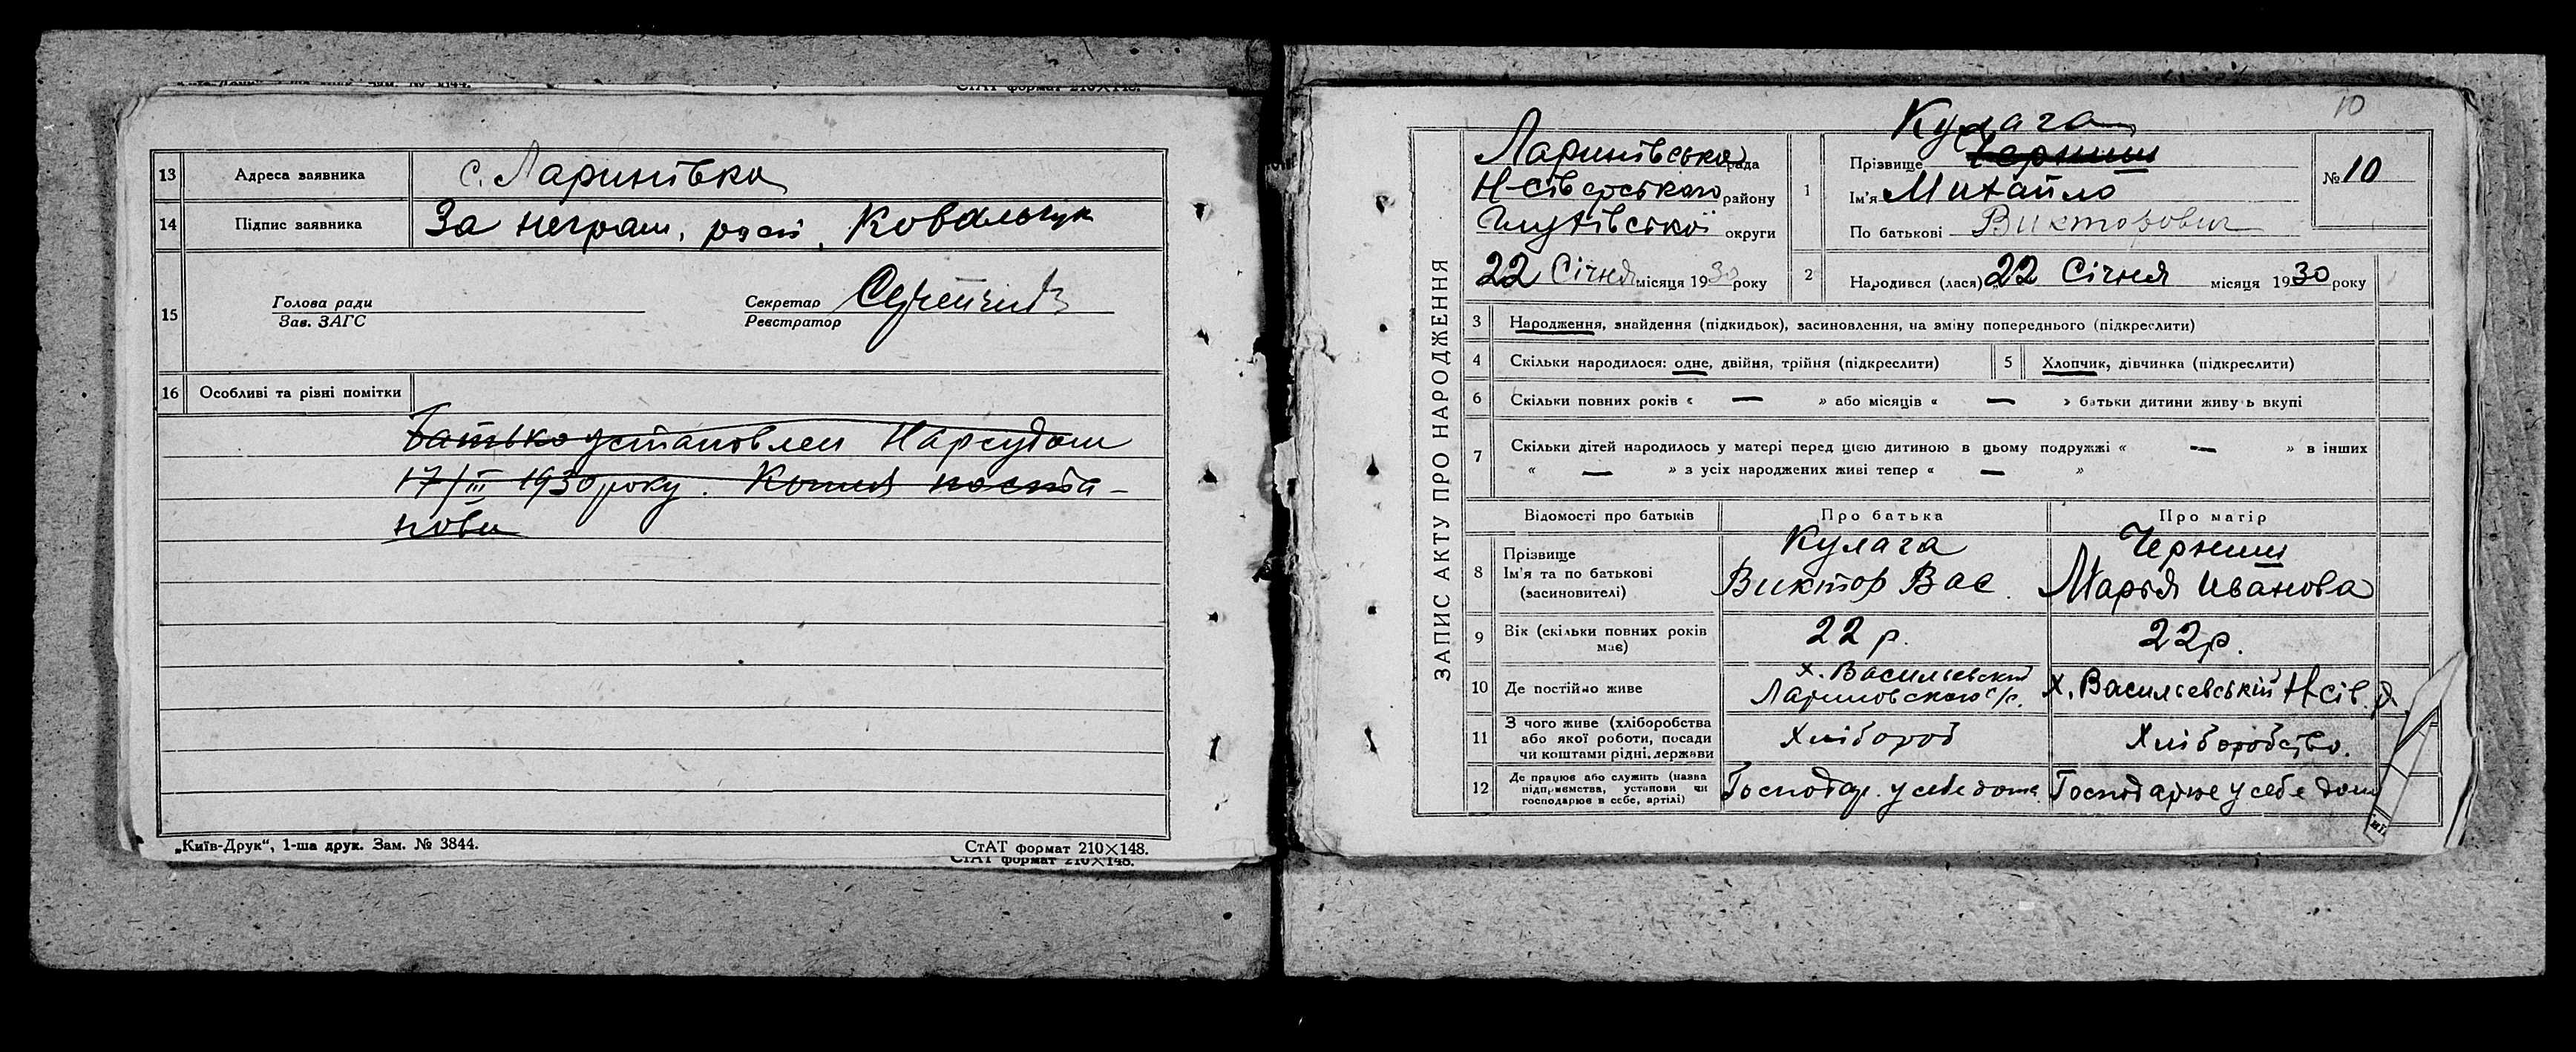 13 Адреса заявника с. Ларинівка
14 Підпис заявника За неграм. Ковальчук
15 Голова ради
Зав. ЗАГС
Секретар
Реєстратор
16 Особливі та рівні помітки
Батько установлен Нарсудом
17/III 1930 року. Копия поста-
нови
„Київ-Друк“, 1-ша друк. Зам. № 3844. СтАТ формат 210×148.
СтАТ формат 210×148.
10
ЗАПИС АКТУ ПРО НАРОДЖЕННЯ
Ларинівська рада
Н-Сіверського району
Глухівської округи
22 Січня місяця 1930 року
1
Кулага
Прізвище Черниш
Ім'я Михайло
По батькові Викторович
№ 10
2 Народився (лася) „22 Січня місяця 1930 року
3 Народження, знайдення (підкидьок), засиновлення, на зміну попереднього (підкреслити)
4 Скільки народилося: одне, двійня, трійня (підкреслити) 5 Хлопчик, дівчинка (підкреслити)
6 Скільки повних років « — » або місяців « — » батьки дитини живуть вкупі
7 Скільки дітей народилось у матері перед цією дитиною в цьому подружжі « — » в інших
« — » з усіх народжених живі тепер « — »
Відомості про батьків Про батька Про матір
8 Прізвище Кулага Черниш
Ім'я та по батькові Виктор Вас. Марья Иванова
(засиновителі)
9 Вік (скільки повних років має) 22 р. 22 р.
10 Де постійно живе х. Васильевский Лариновского с/р. Х. Васильевській Н Сів. р.
11 З чого живе (хліборобства Хлібороб Хліборобство.
або якої роботи, посади
чи коштами рідні, держави
12 Де працює або служить (назва Господар. у себе дома. Господарює у себе дома
підприємства, установи чи
господарює в себе, артілі)